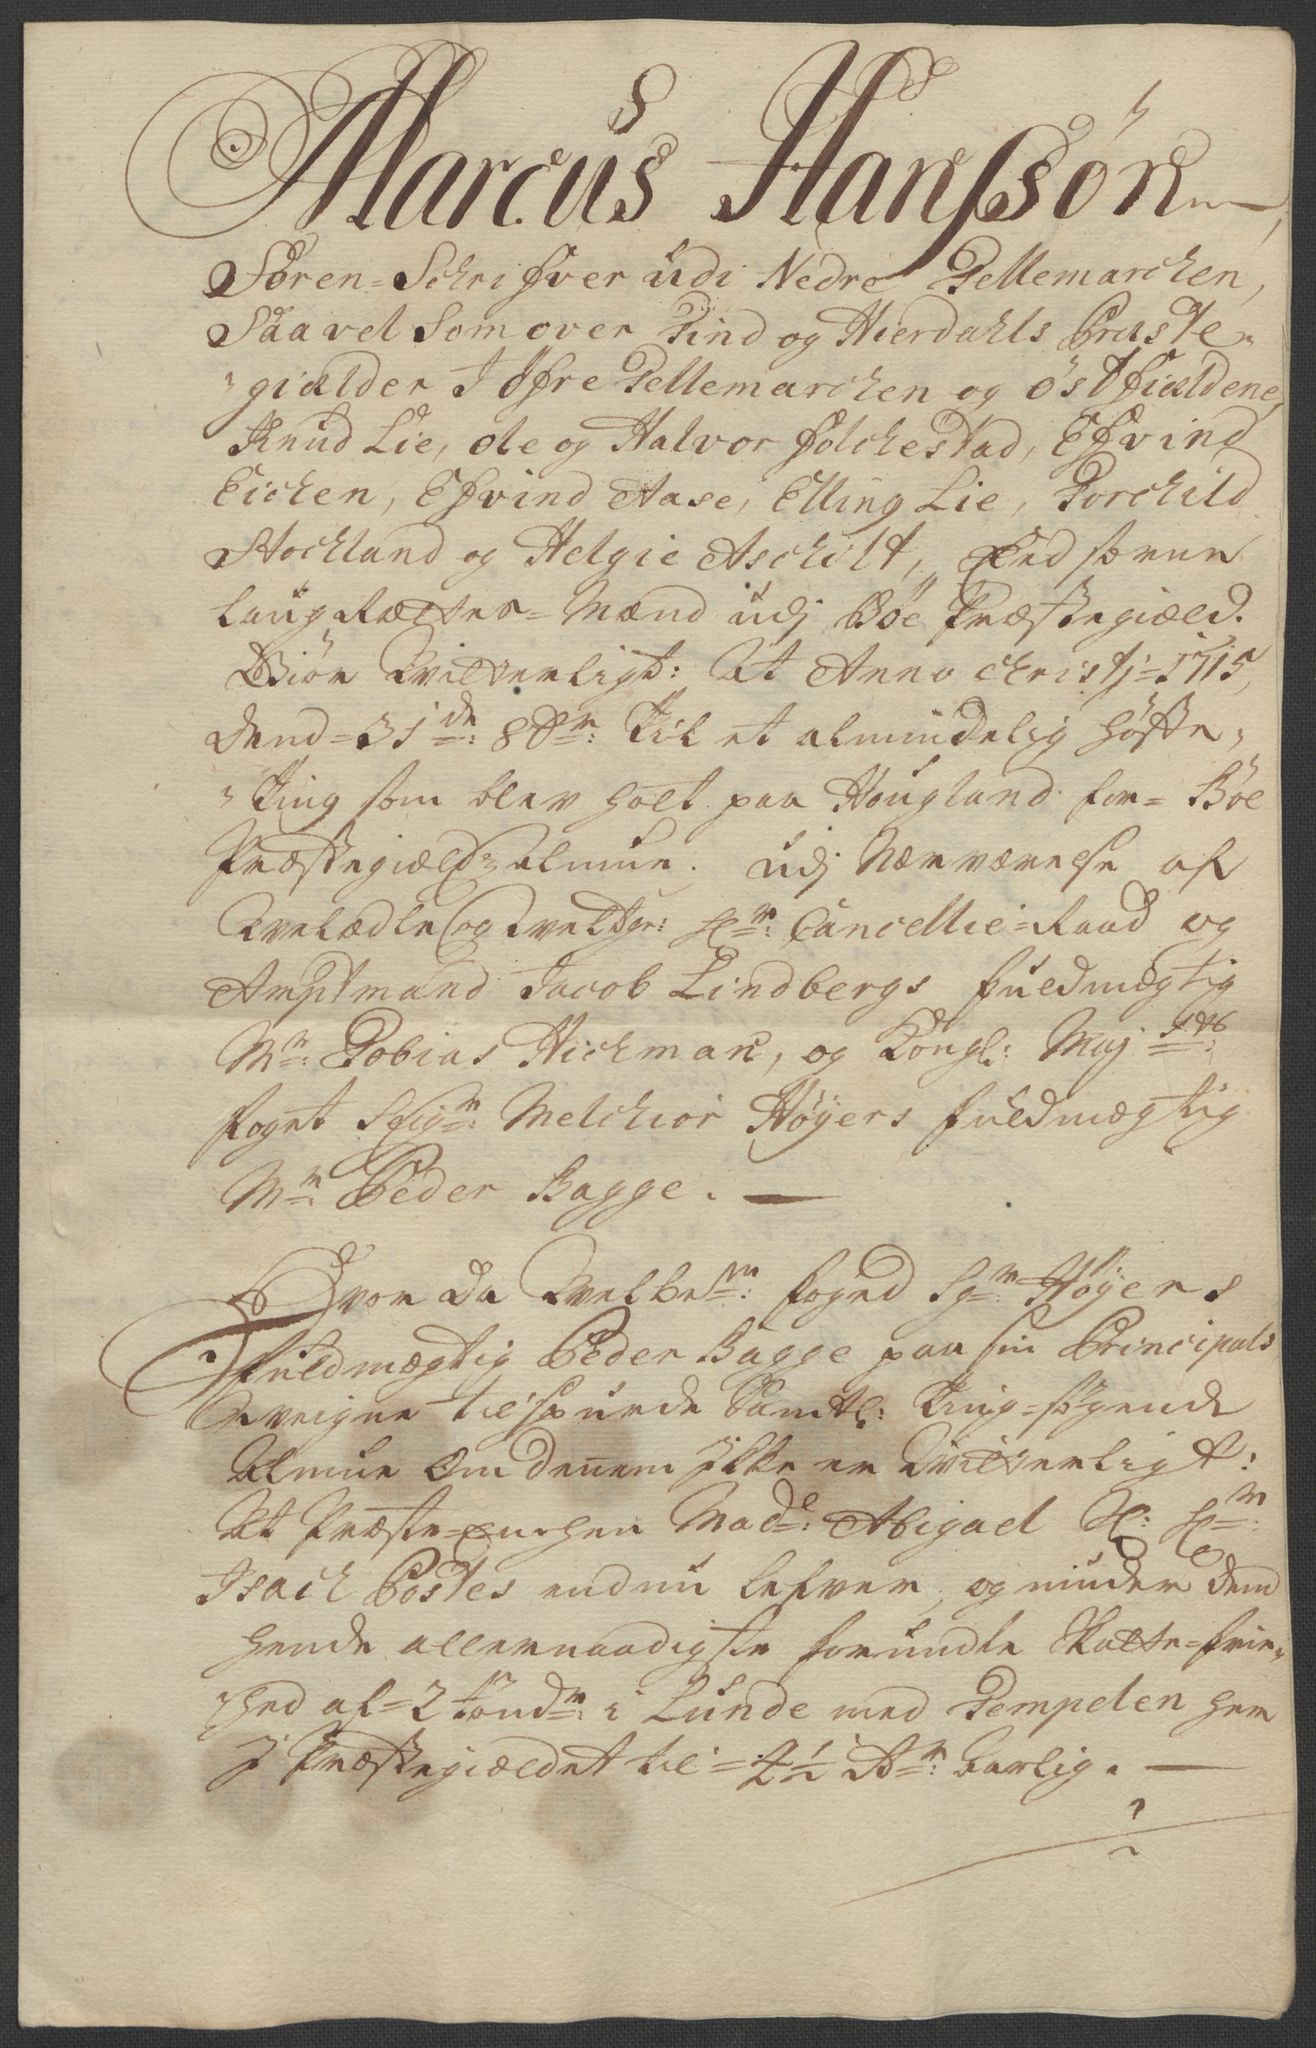 Marcus Hanssøn
Sören-Schrifver udi Nedre Tellemarchen,
Saavel Som over Tind og Hierdahls Præste-
gielder I Öfre Tellemarchen og Östfieldene,
Knud Lie, Ole og Halvor Folchestad, Efvind
Eichen, Efvind Aase, Elling Lie, Torchild
Stochland og Helgie Aschilt, Eed sorne
Laug Rættes-Mænd udj Böe Præstegield.
Giör Witterligt: At Anno Christj=1715,
dend=31de: 8br: til et almindelig höste-
Ting som blev holt paa Hougland for= Böe
Præstegields Almue. Udj Nærværelse af
Welædle og Welbr: Hr: Cancellie-Raad og
Amptmand Jacob Lindbergs fuldmægtig
Mr: Tobias Hichman, og Kongl: Maj sts:
foget Sigr: Melchior Høyers fuldmægtig
Mr: Peder Bagge.
Hvor da Welbem: foged Sgr: Høyers
fuldmægtig Peder Bagge paa sin Principals
veigne tilspurde Samtl: Ting-søgende
Almue Om dennem ikke er Witterligt:
At Præste-Enchen Made: Abigael Sl: Hr:
Isach Postes endnu lefver, og niuder dend
hende allernaadigste forundte Skatte-frie-
hed af=2 tönder: i Lunde med Tempelen her
I Præstegieldet til=4½ Ar: Aarlig.